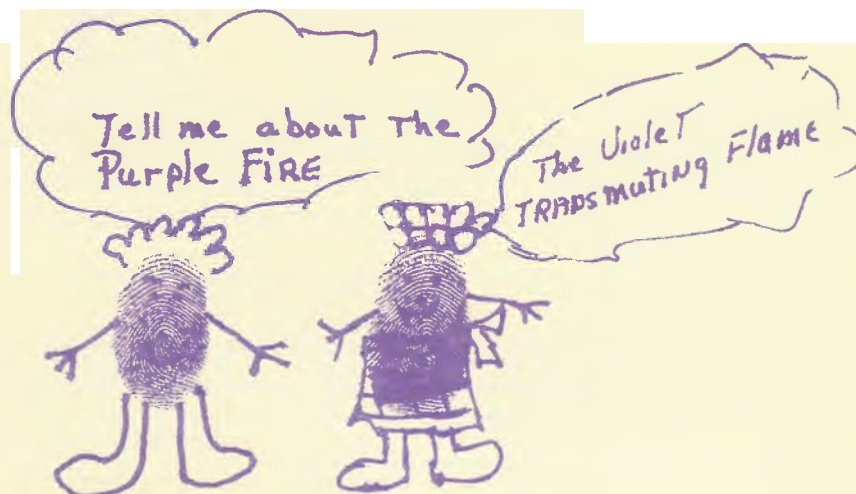 Tell me about The
Purple FIRE
The Violet
TRANSMUTING Flame